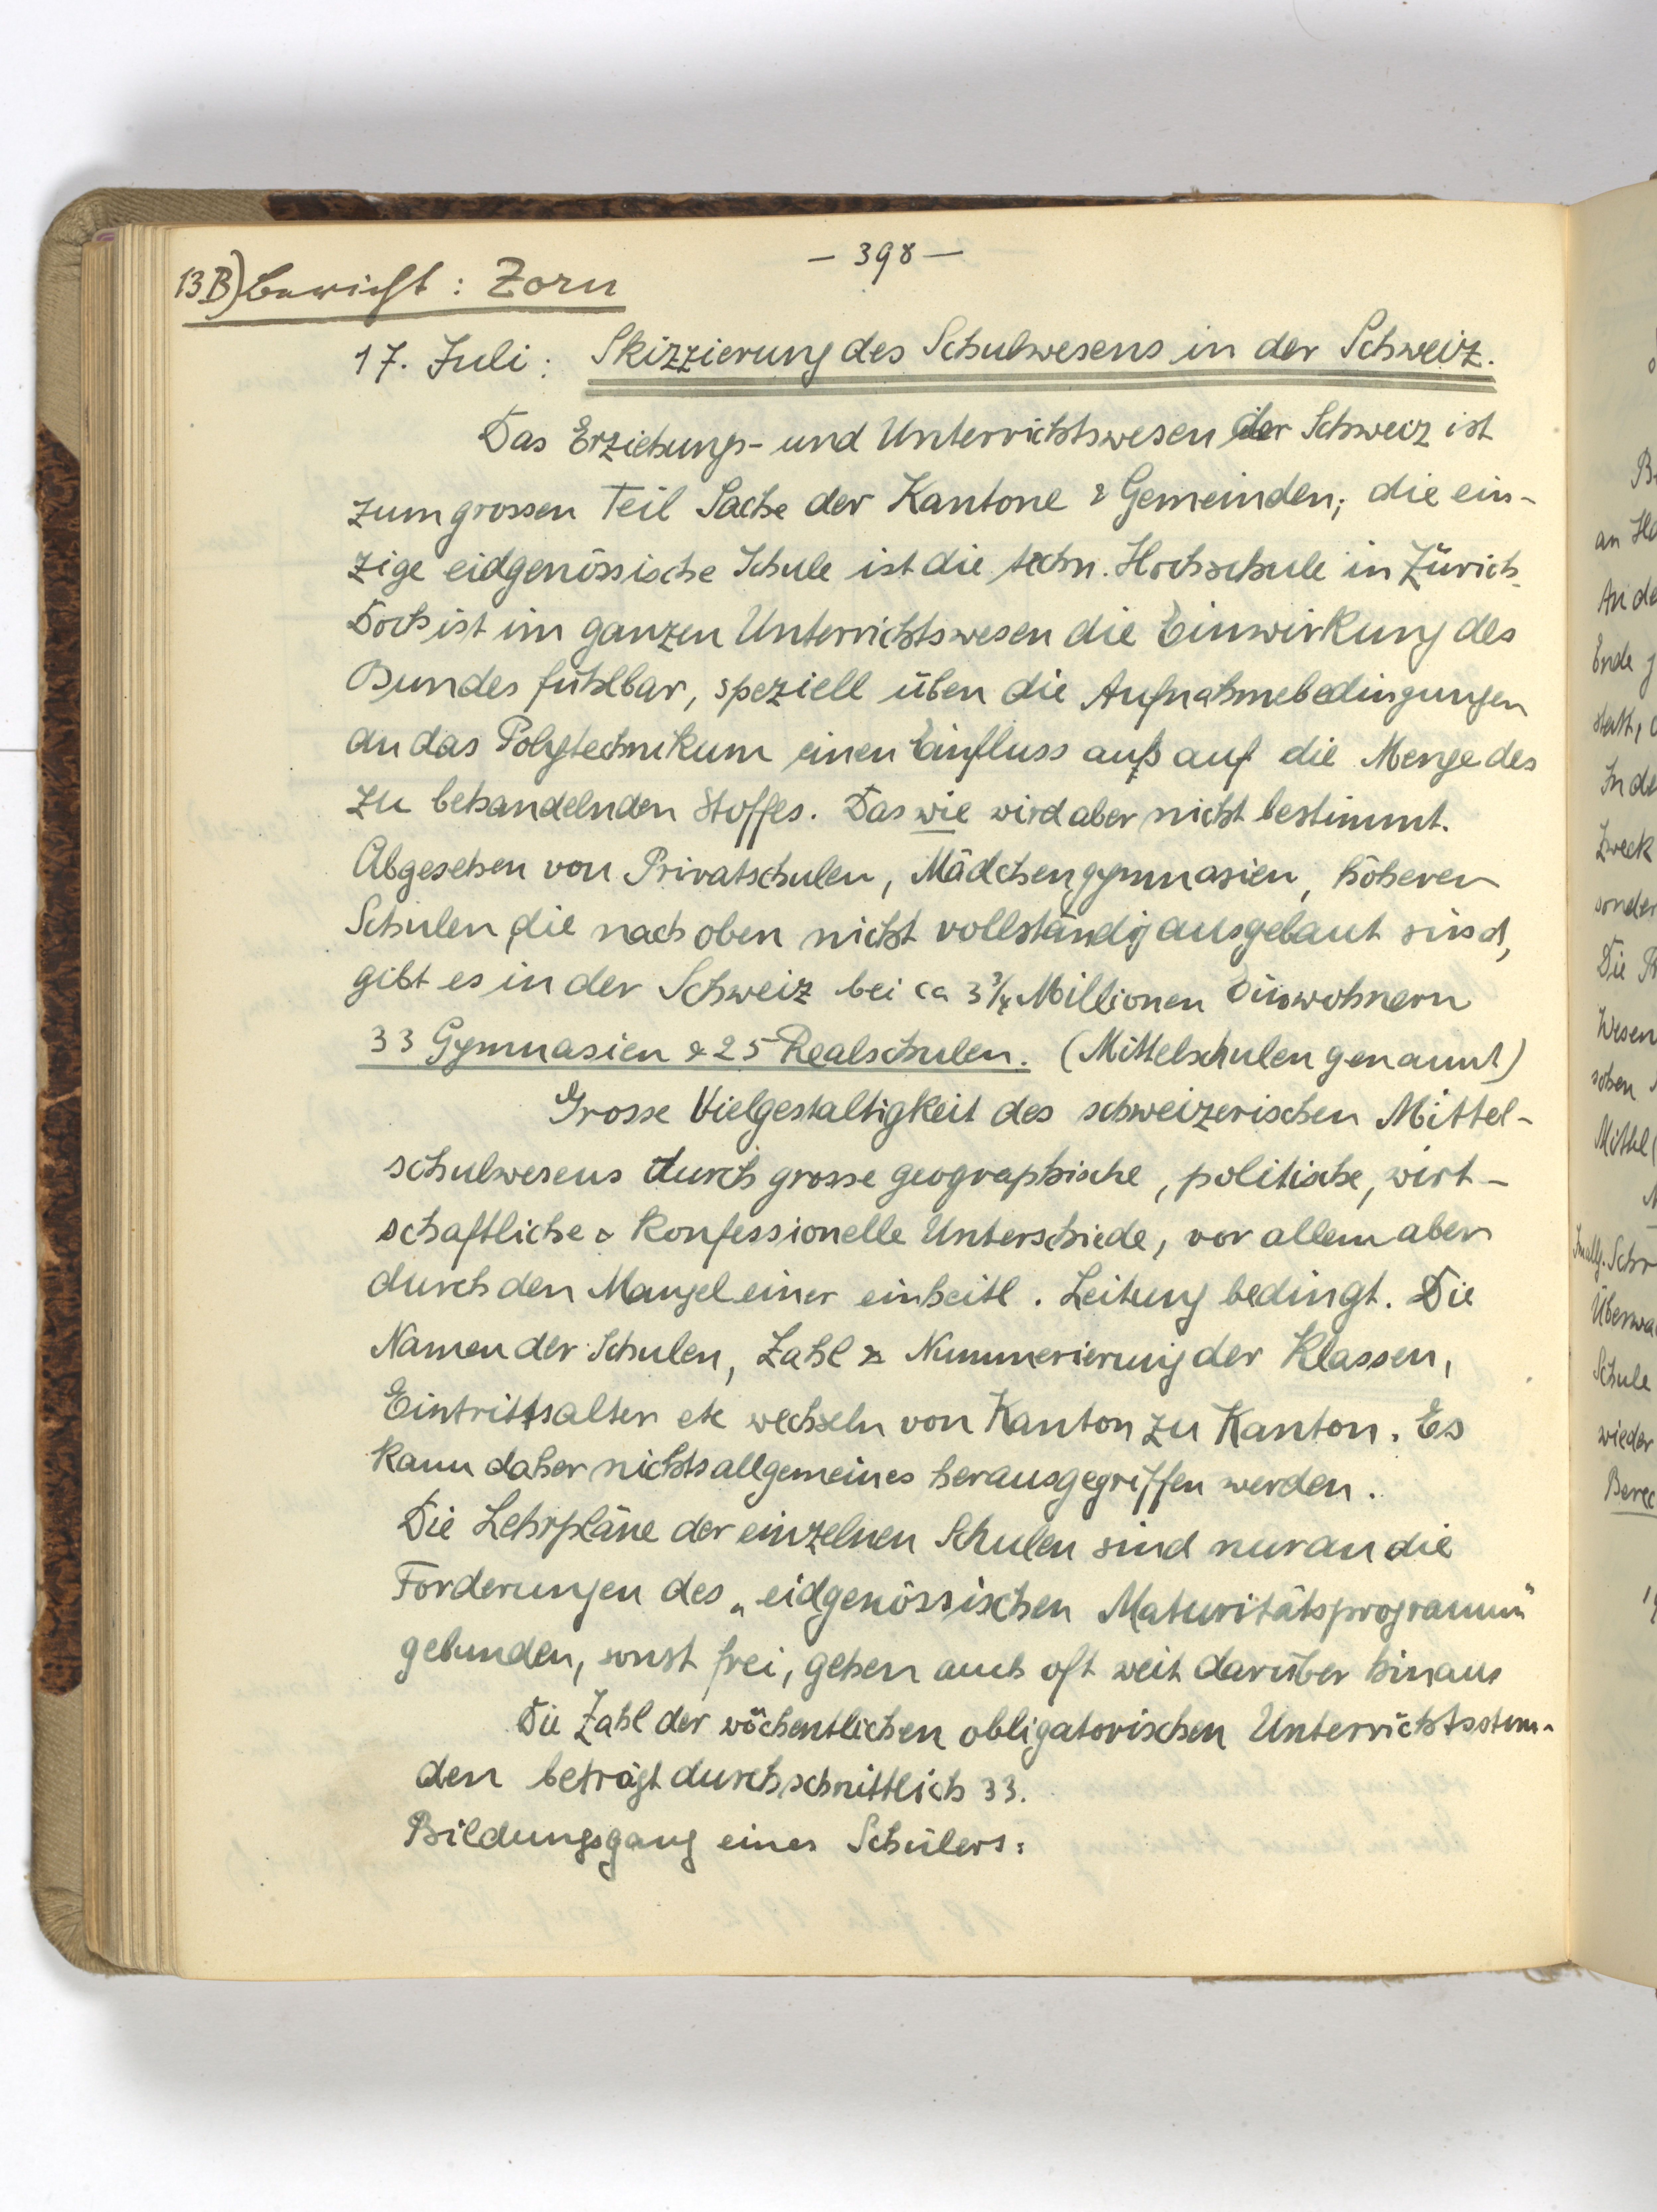 — 398 —
13B) Bericht : Zorn
17. Juli : Skizzierung des Schulwesens in der Schweiz.
Das Erziehungs- und Unterrichtswesen der Schweiz ist
zum grossen Teil Sache der Kantone & Gemeinden; die ein-
zige eidgenössische Schule ist die techn. Hochschule in Zürich.
Doch ist im ganzen Unterrichtswesen die Einwirkung des
Bundes fühlbar, speziell üben die Aufnahmebedingungen
an das Polytechnikum einen Einfluss aus auf die Menge des
zu behandelnden Stoffes. Das wie wird aber nicht bestimmt.
Abgesehen von Privatschulen, Mädchengymnasien, höheren
Schulen die nach oben nicht vollständig ausgebaut sind,
gibt es in der Schweiz bei ca 3 3/4 Millionen Einwohnern
33 Gymnasien & 25 Realschulen. (Mittelschulen genannt)
Grosse Vielgestaltigkeit des schweizerischen Mittel-
schulwesens durch grosse geographische, politische, wirt-
schaftliche & konfessionelle Unterschiede, vor allem aber
durch den Mangel einer einheitl. Leitung bedingt. Die
Namen der Schulen, Zahl & Nummerierung der Klassen,
Eintrittsalter etc wechseln von Kanton zu Kanton. Es
kann daher nichts allgemeines herausgegriffen werden.
Die Lehrpläne der einzelnen Schulen sind nur an die
Forderungen des „eidgenössischen Maturitätsprogramm"
gebunden, sonst frei, gehen auch oft weit darüber hinaus
Die Zahl der wöchentlichen obligatorischen Unterrichtsstun-
den beträgt durchschnittlich 33.
Bildungsgang eines Schülers:
an
Ende
Zweck
Die
Wesen
Schule
wieder